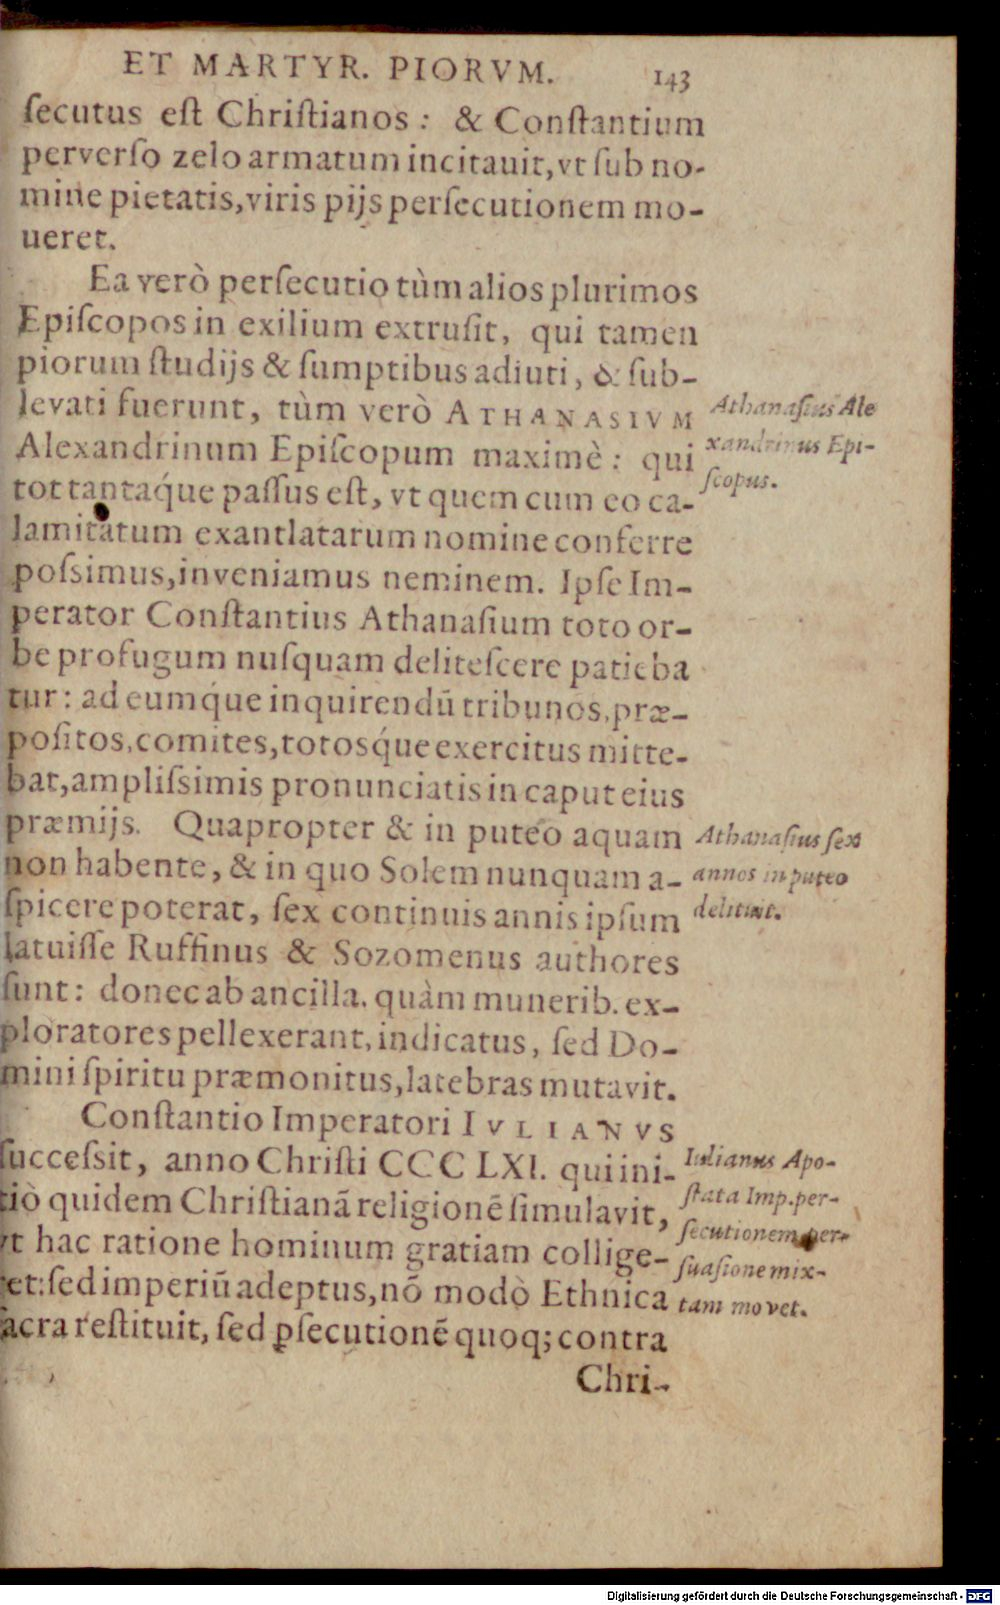 ET MARTYR. PIORVM. 143
ſecutus eſt Chriſtianos: & Conſtantium
perverſo zelo armatum incitauit, vt ſub no-
mine pietatis, viris pijs perſecutionem mo-
ueret.
Ea verò perſecutio tùm alios plurimos
Epiſcopos in exilium extruſit, qui tamen
piorum ſtudijs & ſumptibus adiuti, & ſub-
levati fuerunt, tùm verò ATHANASIVM
Alexandrinum Epiſcopum maximè: qui
tot tantaq́ue paſſus eſt, vt quem cum eo ca-
lamitatum exantlatarum nomine conferre
poſsimus, inveniamus neminem. Ipſe Im-
perator Conſtantius Athanaſium toto or-
be profugum nuſquam deliteſcere patieba
tur: ad eumq́ue inquirendū tribunos, præ-
poſitos, comites, totosq́ue exercitus mitte-
bat, ampliſsimis pronunciatis in caput eius
præmijs. Quapropter & in puteo aquam
non habente, & in quo Solem nunquam a-
ſpicere poterat, ſex continuis annis ipſum
latuiſſe Ruffinus & Sozomenus authores
ſunt: donec ab ancilla. quàm munerib. ex-
ploratores pellexerant, indicatus, ſed Do-
mini ſpiritu præmonitus, latebras mutavit.
Conſtantio Imperatori IVLIANVS
ſucceſsit, anno Chriſti CCC LXI. qui ini-
tiò quidem Chriſtianã religionẽ ſimulavit,
vt hac ratione hominum gratiam collige-
ret: ſed imperiũ adeptus, nõ modò Ethnica
ſacra reſtituit, ſed ꝑſecutionẽ quoq; contra
Chri-
Athanaſius Ale
xandrinus Epi-
ſcopus.
Athanaſius ſex
annos in puteo
delituit.
Iulianus Apo-
ſtata Imp. per-
ſecutionem per-
ſuaſione mix-
tam movet.
Digitalisierung gefördert durch die Deutsche Forschungsgemeinschaft - DFG